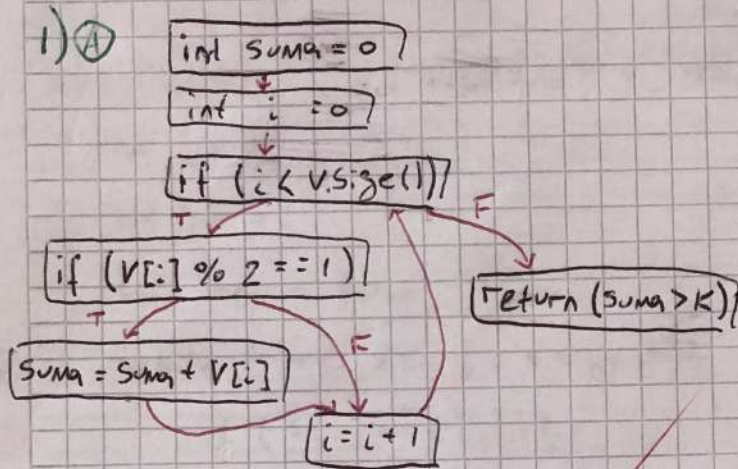 1) A
int suma = 0
int i = 0
if (i < v.size())
T
F
if (V[i] % 2 == 1)
return (suma > K)
T
F
suma = suma + V[i]
i = i + 1